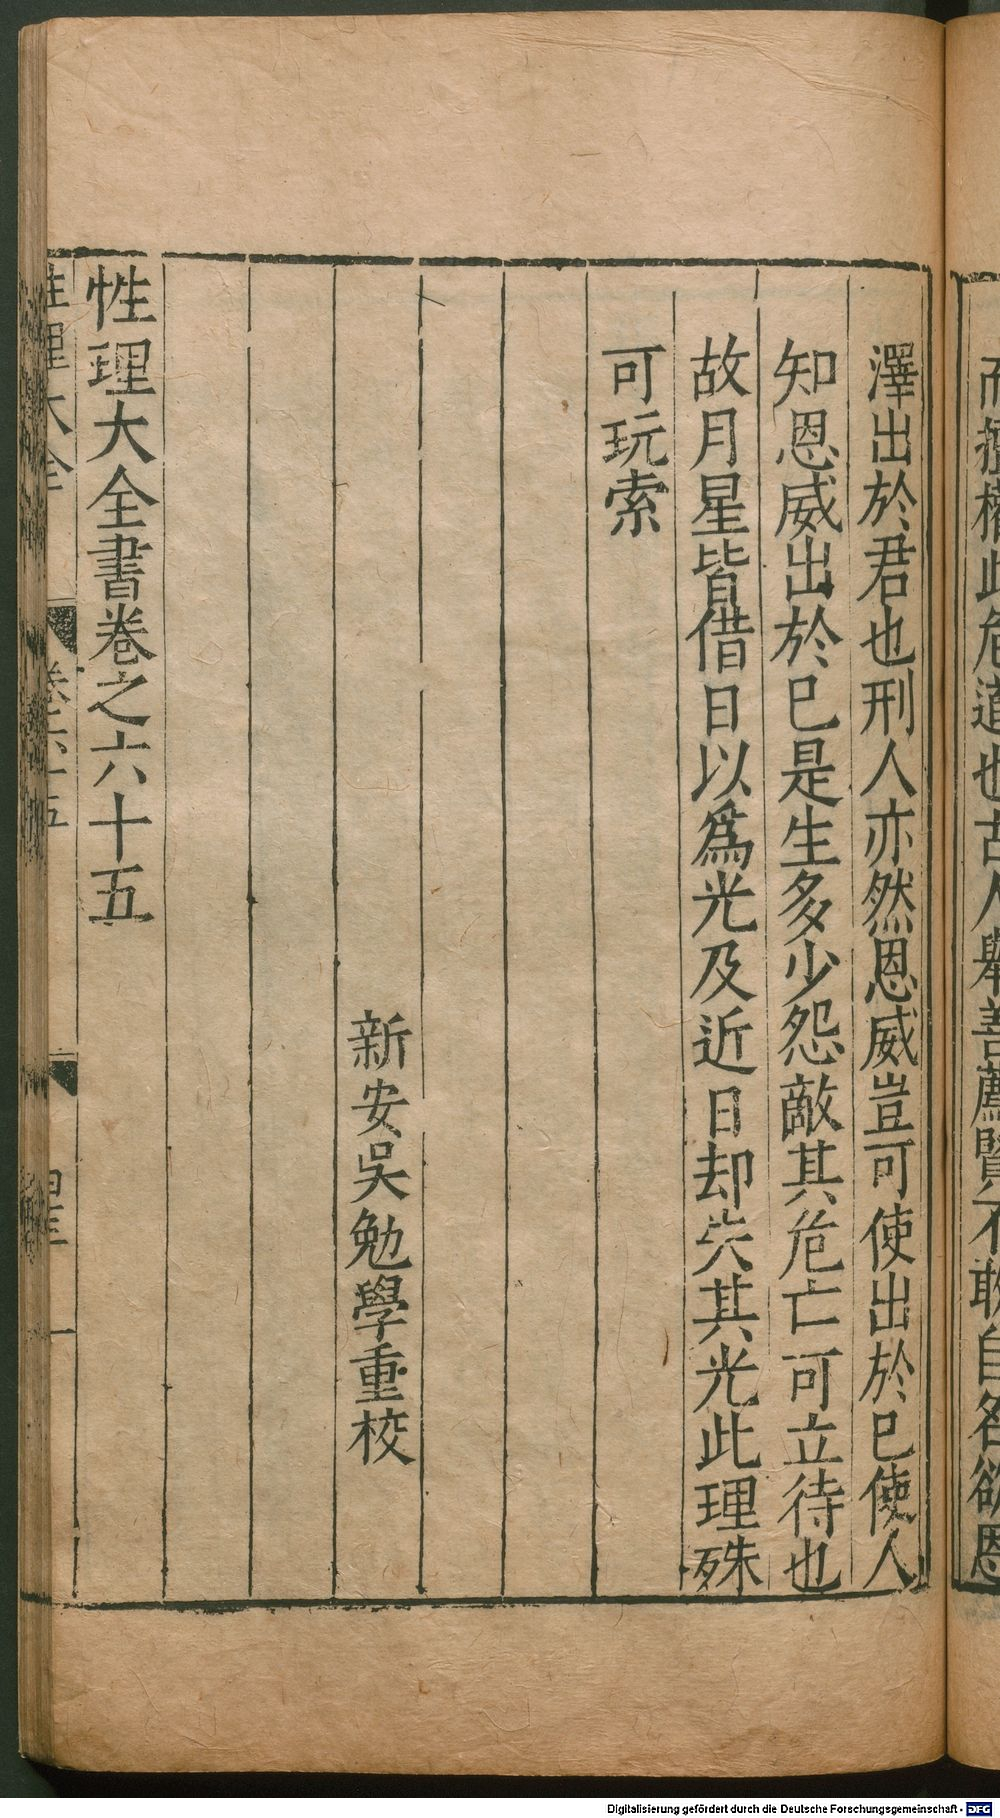 而擅權此危道也古人舉善薦賢不敢自名欲恩
澤出於君也刑人亦然恩威豈可使出於已使人
知恩威出於已是生多少怨敵其危亡可立待也
故月星皆借日以爲光及近日却失其光此理殊
可玩索
新安吳勉學重校
性理大全書卷之六十五
性理大全
卷六十五
Digitalisierung gefördert durch die Deutsche Forschungsgemeinschaft - DFG